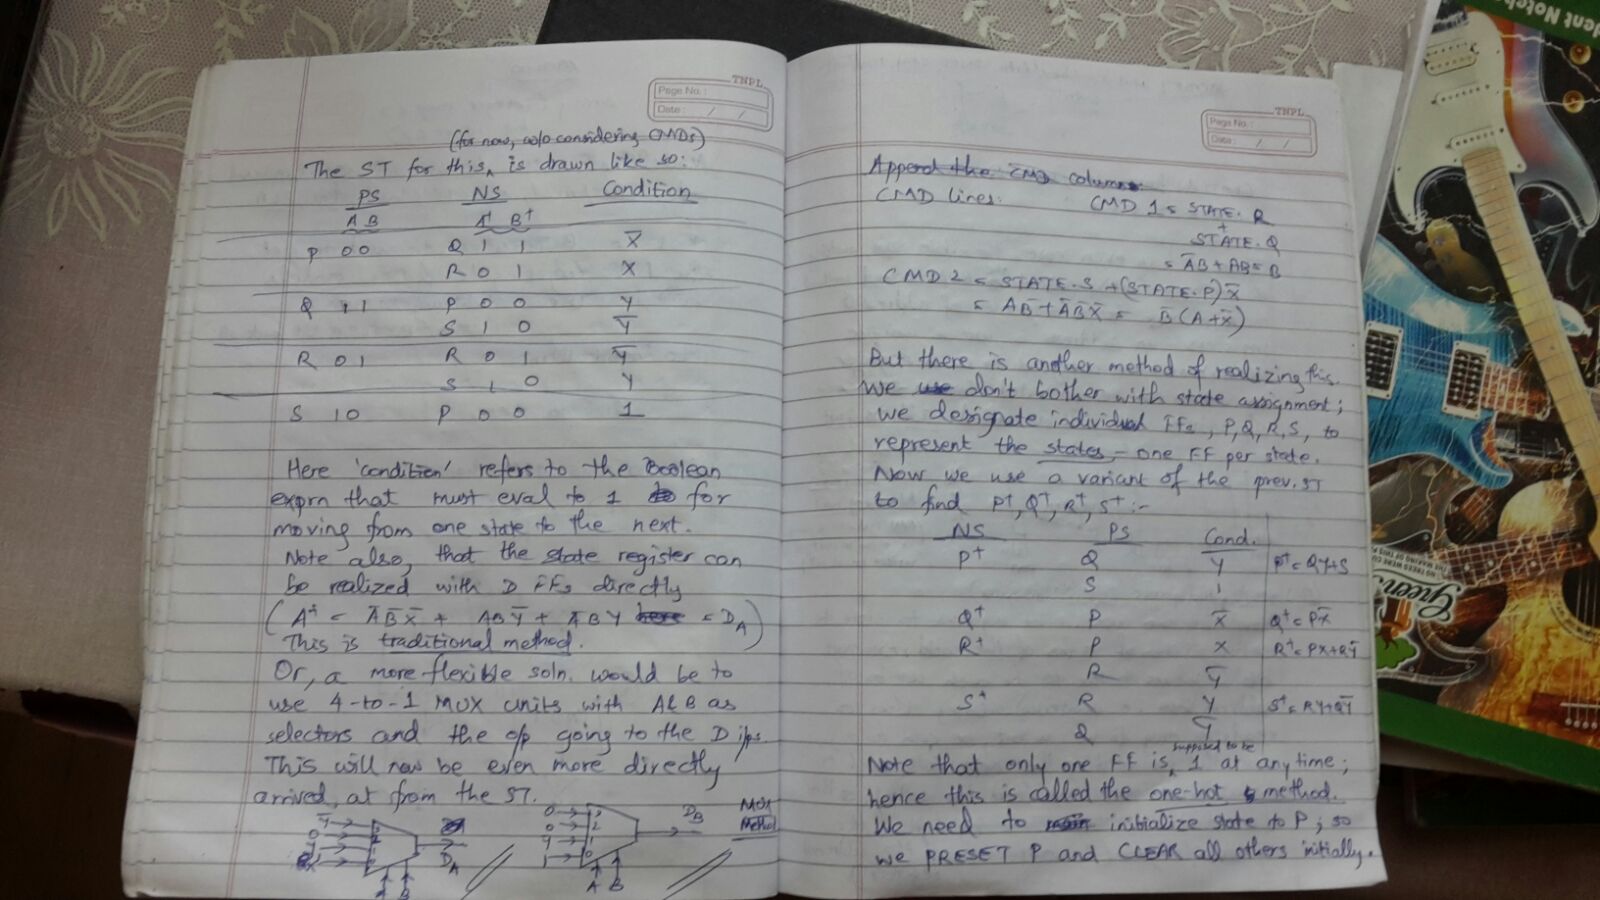 TNPL
Page No. :
Date : / /
(for now, w/o considering CMDs)
The ST for this, is drawn like so:
PS NS Condition
A B A⁺ B⁺
P 0 0 Q 1 1 X̅
R 0 1 X
Q 1 1 P 0 0 Y
S 1 0 Y̅
R 0 1 R 0 1 Y̅
S 1 0 Y
S 1 0 P 0 0 1
Here 'condition' refers to the Boolean
exprn that must eval to 1 for
moving from one state to the next.
Note also, that the state register can
be realized with D FFs directly
(A⁺ = A̅ B̅ X̅ + A B Y̅ + A̅ B Y = D_A)
This is traditional method.
Or, a more flexible soln. would be to
use 4-to-1 MUX units with A & B as
selectors and the o/p going to the D i/ps.
This will now be even more directly
arrived, at from the ST.
Y̅ 3
0 2
Y 1
X̅ 0
D_A
A B
0 3
0 2
Y̅ 1
1 0
D_B
A B
MUX
Method
TNPL
Page No. :
Date : / /
Append the CMD columns
CMD lines: CMD 1 = STATE. R
+
STATE. Q
= A̅B + AB = B
CMD 2 = STATE. S + (STATE. P) X̅
= AB̅ + A̅B̅X̅ = B̅(A + X̅)
But there is another method of realizing this.
We use don't bother with state assignment;
we designate individual FFs, P, Q, R, S, to
represent the states – one FF per state.
Now we use a variant of the prev. ST
to find P⁺, Q⁺, R⁺, S⁺ :-
NS PS Cond.
P⁺ Q Y P⁺ = QY+S
S 1
Q⁺ P X̅ Q⁺ = PX̅
R⁺ P X R⁺ = PX+RY̅
R Y̅
S⁺ R Y S⁺ = RY+QY̅
Q Y̅
supposed to be
Note that only one FF is, 1 at any time;
hence this is called the one-hot method.
We need to initialize state to P; so
we PRESET P and CLEAR all others initially.